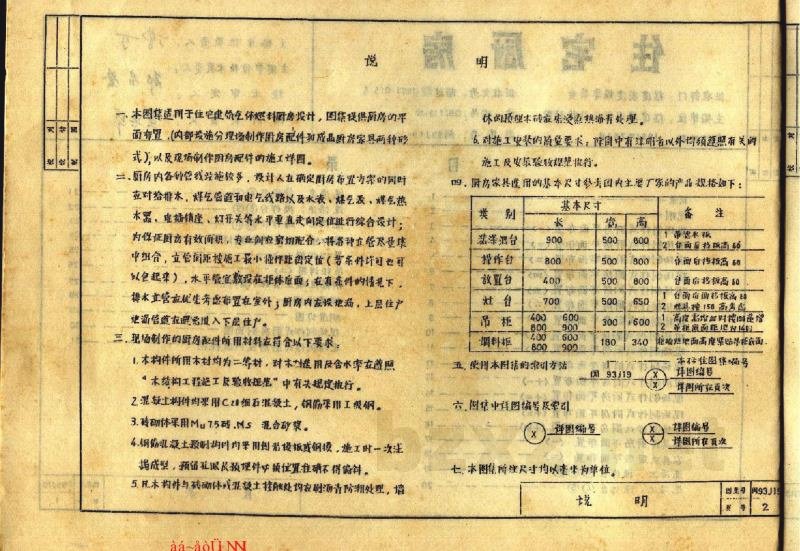 说 明
一.本图集适用于住宅建筑气体燃料厨房设计,图集提供厨房的平
面布置,(内部设施分现场制作厨房配件和成品厨房家具两种形
式),以及现场制作厨房配件的施工详图。
二.厨房内各种管线设施较多,设计人在确定厨房布置方案的同时
应对给排水、煤气管道和电气线路以及水表、煤气表、煤气热
水器、电插销座、灯开关等水平垂直走向定位进行综合设计;
为保证厨房有效面积,专业间应密切配合,将各种立管尽量集
中组合,立管间距按施工最小操作距离定位(若条件许可也可
以包起来),水平管宜敷设在柜体后面;在有条件的情况下,
排水立管应优先考虑布置在室外;厨房内应设地漏,上层住户
地漏管道应避免进入下层住户。
三.现场制作的厨房配件所用材料应符合以下要求:
1.木构件所用木材均为二等材,对木材选用及含水率应遵照
"木结构工程施工及验收规范"中有关规定执行。
2.混凝土构件均采用C20细石混凝土,钢筋采用Ⅰ级钢。
3.砖砌体采用Mu7.5砖.M5 混合砂浆。
4.钢筋混凝土预制构件均采用刨光模板或钢模,施工时一次注
捣成型,预留孔洞及预埋件中线位置准确不得偏斜。
5.凡木构件与砖砌体或混凝土接触处均应刷沥青防潮处理,墙
体的预埋木砖应浸热沥青处理。
6.对施工安装的质量要求;除图中有注明者以外均须遵照有关的
施工及安装验收规范执行。
四.厨房家具选用的基本尺寸参考国内主要厂家的产品规格如下:
类 别 基本尺寸 备 注
长 宽 高
900 500 800 1
2 台面后挡板高60
操作台 800 500 800 台面后挡板高60
放置台 400 500 800 台面后挡板高60
灶 台 700 500 650 1 台面后面挡板高60
2
吊 柜 400 600 300 600 1
800 900 2
调料柜 400 600 180 340
800 900
五.使用本图集的索引方法 本标准图集编号
闽 93J19 X 详图编号
X 详图所在页次
六.图集中详图编号及索引
X 详图编号 X 详图编号
X 详图所在页次
七.本图集所注尺寸均以毫米为单位。
说 明
图集号 闽93J19
页 号 2
àá~åòÜ